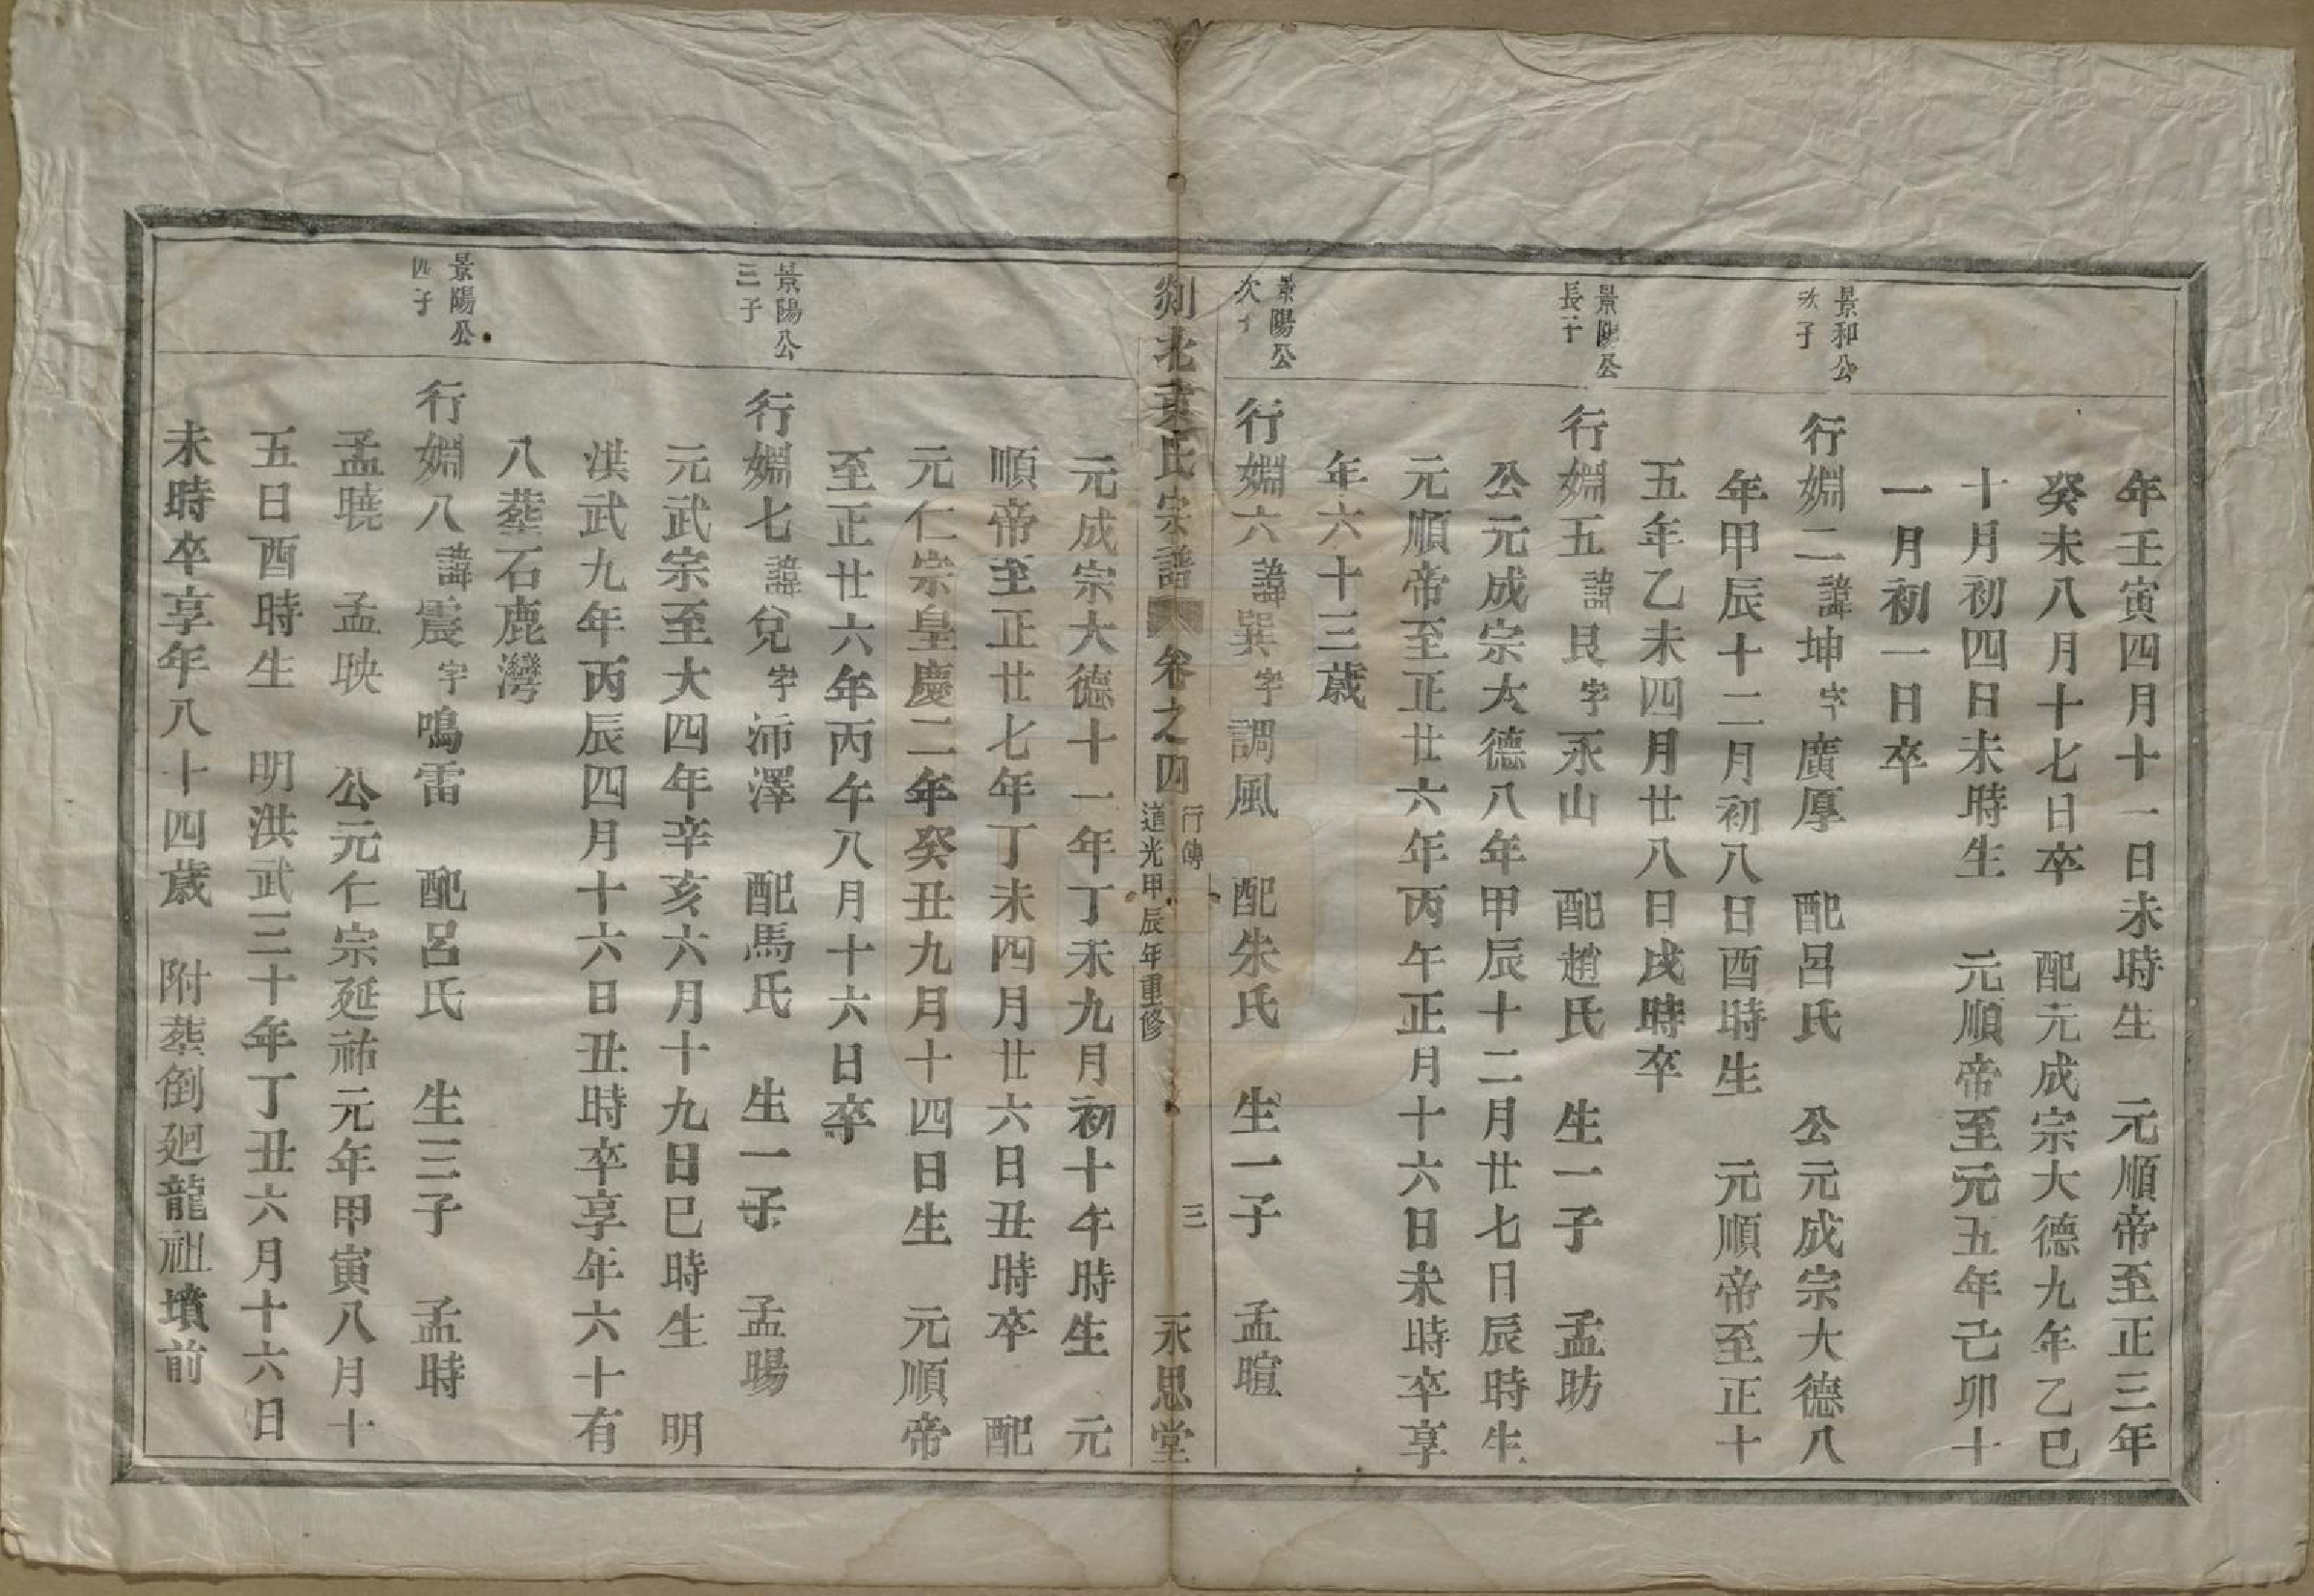 年壬寅四月十一日未時生 元順帝至正三年
癸未八月十七日卒 配元成宗大德九年乙巳
十月初四日未時生 元順帝至元五年己卯十
一月初一日卒
景和公
次子
行婣二諱坤字廣厚 配呂氏 公元成宗大德八
年甲辰十二月初八日酉時生 元順帝至正十
五年乙未四月廿八日戌時卒
景陽公
長子
行婣五諱艮字永山 配趙氏 生一子 孟昉
公元成宗大德八年甲辰十二月廿七日辰時生
元順帝至正廿六年丙午正月十六日未時卒享
年六十三歲
景陽公
次子
行婣六諱巽字調風 配朱氏 生一子 孟暄
剡北 氏宗譜 卷之四
行傳
道光甲辰年重修
三
永思堂
元成宗大德十一年丁未九月初十午時生 元
順帝至正廿七年丁未四月廿六日丑時卒 配
元仁宗皇慶二年癸丑九月十四日生 元順帝
至正廿六年丙午八月十六日卒
景陽公
三子
行婣七諱兌字沛澤 配馬氏 生一子 孟暘
元武宗至大四年辛亥六月十九日巳時生 明
洪武九年丙辰四月十六日丑時卒享年六十有
八葬石鹿灣
景陽公
四子
行婣八諱震字鳴雷 配呂氏 生三子 孟時
孟曉 孟映 公元仁宗延祐元年甲寅八月十
五日酉時生 明洪武三十年丁丑六月十六日
未時卒享年八十四歲 附葬倒廻龍祖墳前